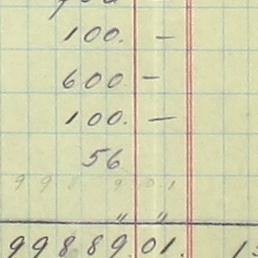 100. —
600 —
100. —
56
9 9 8 9. 0.1
" "
99889.01. 1